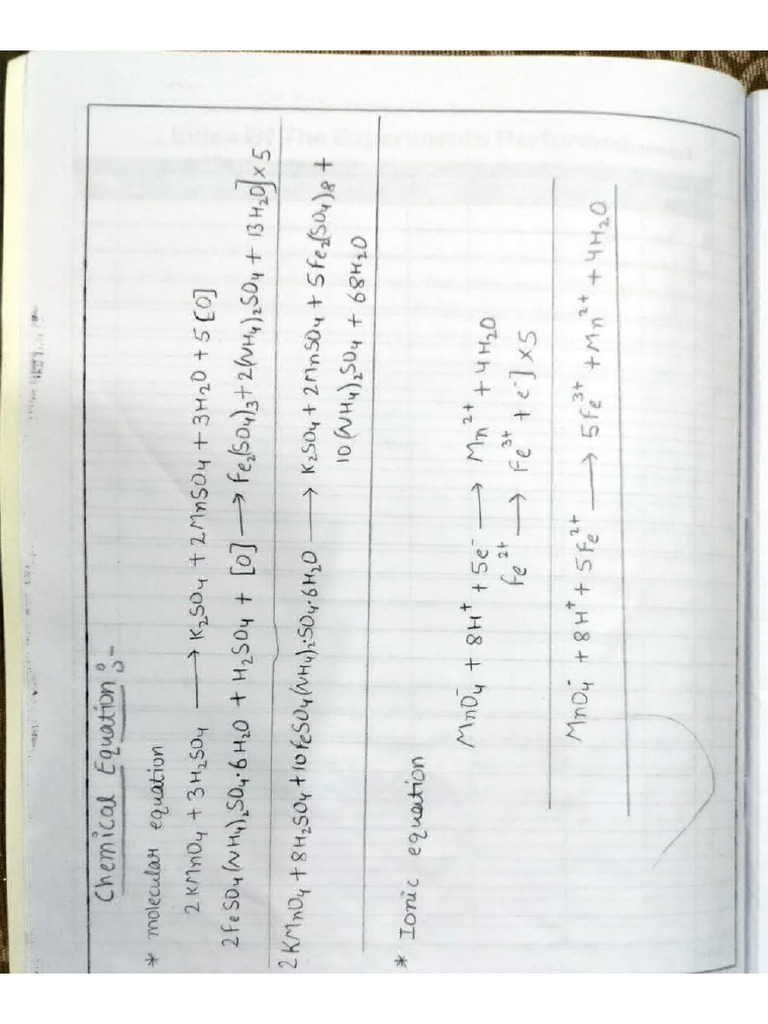 Chemical Equation :-
* molecular equation
2KMnO₄ + 3H₂SO₄ ⟶ K₂SO₄ + 2MnSO₄ + 3H₂O + 5[O]
2FeSO₄(NH₄)₂SO₄·6H₂O + H₂SO₄ + [O] ⟶ Fe₂(SO₄)₃ + 2(NH₄)₂SO₄ + 13H₂O] ×5
2KMnO₄ + 8H₂SO₄ + 10FeSO₄(NH₄)₂SO₄·6H₂O ⟶ K₂SO₄ + 2MnSO₄ + 5Fe₂(SO₄)₈ +
10(NH₄)₂SO₄ + 68H₂O
* Ionic equation
MnO₄⁻ + 8H⁺ + 5e⁻ ⟶ Mn²⁺ + 4H₂O
Fe²⁺ ⟶ Fe³⁺ + e⁻] ×5
MnO₄⁻ + 8H⁺ + 5Fe²⁺ ⟶ 5Fe³⁺ + Mn²⁺ + 4H₂O